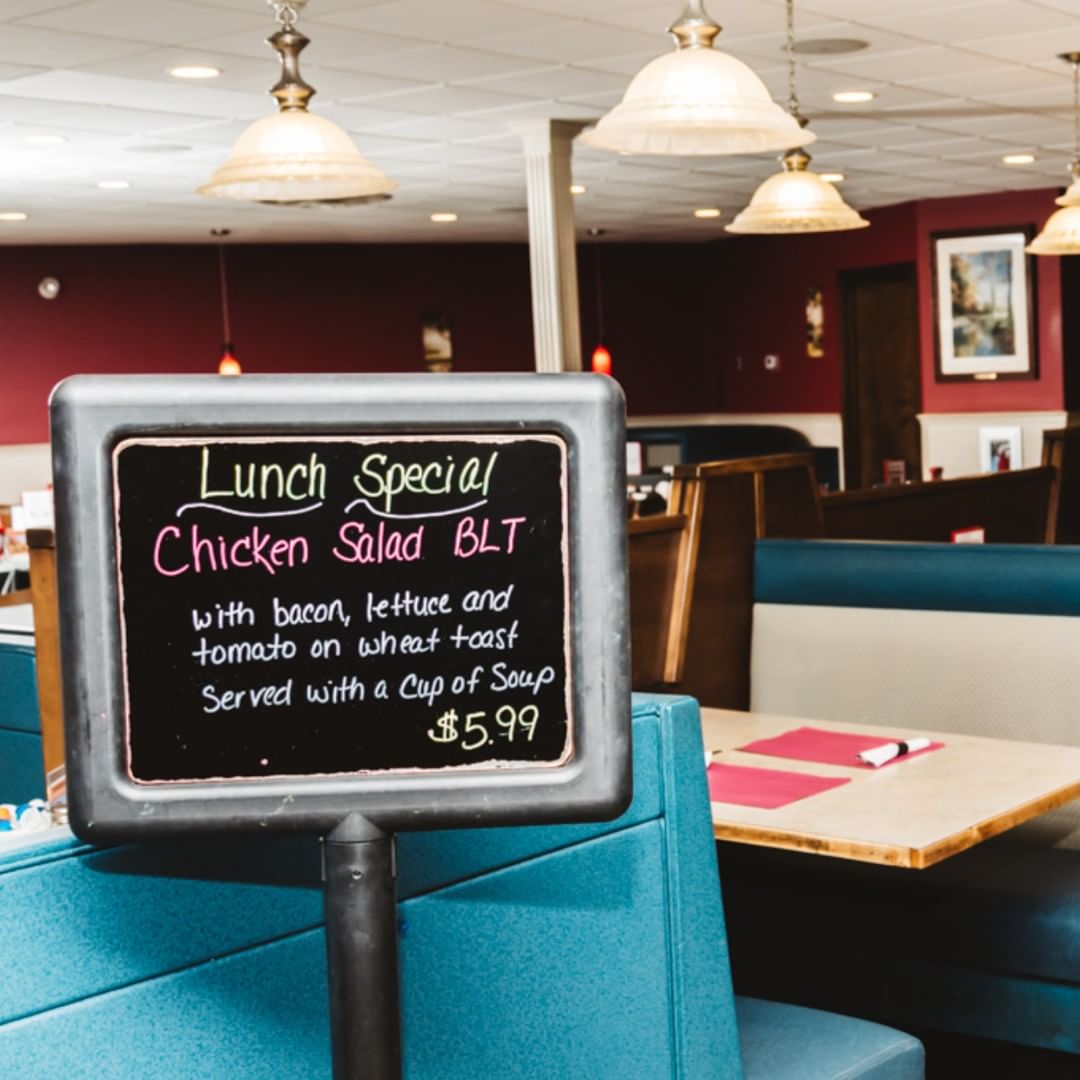 Lunch Special
Chicken Salad BLT
with bacon, lettuce and
tomato on wheat toast
Served with a Cup of Soup
$5.99